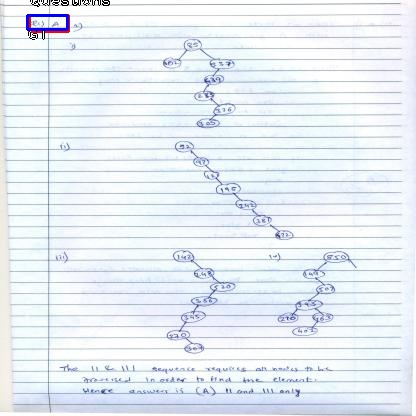 Questions
A
GT
i)
85
ii)
92
97
195
242
381
472
iii)
142
248
520
386
345
270
307
iv)
550
149
507
395
463
402
The II & III sequence requires all nodes to be
traversed in order to find the element.
Hence answer is (A) II and III only